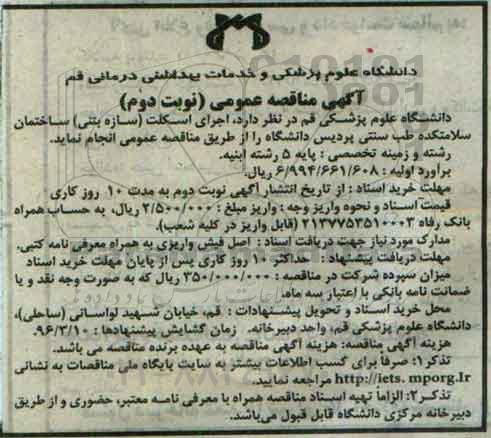 دانشگاه علوم پزشکی و خدمات بهداشتی درمانی قم
آگهی مناقصه عمومی (نوبت دوم)
دانشگاه علوم پزشکی قم در نظر دارد، اجرای اسکلت (سازه بتنی) ساختمان
سلامتکده طب سنتی پردیس دانشگاه را از طریق مناقصه عمومی انجام نماید.
رشته و زمینه تخصصی : پایه ۵ رشته ابنیه.
برآورد اولیه : ۶/۹۹۴/۶۶۱/۶۰۸ ریال.
مهلت خرید اسناد : از تاریخ انتشار آگهی نوبت دوم به مدت ۱۰ روز کاری
قیمت اسناد و نحوه واریز وجه : واریز مبلغ : ۲/۵۰۰/۰۰۰ ریال، به حساب همراه
بانک رفاه ۲۱۳۷۷۵۳۵۱۰۰۰۳ (قابل واریز در کلیه شعب).
مدارک مورد نیاز جهت دریافت اسناد : اصل فیش واریزی به همراه معرفی نامه کتبی.
مهلت دریافت پیشنهاد : حداکثر ۱۰ روز کاری پس از پایان مهلت خرید اسناد
میزان سپرده شرکت در مناقصه : ۳۵۰/۰۰۰/۰۰۰ ریال که به صورت وجه نقد و یا
ضمانت نامه بانکی با اعتبار سه ماه.
محل خرید اسناد و تحویل پیشنهادات : قم، خیابان شهید لواسانی (ساحلی)،
دانشگاه علوم پزشکی قم، واحد دبیرخانه. زمان گشایش پیشنهادها : ۹۶/۳/۱۰.
هزینه آگهی مناقصه: هزینه آگهی مناقصه به عهده برنده مناقصه می باشد.
تذکر۱: صرفاً برای کسب اطلاعات بیشتر به سایت پایگاه ملی مناقصات به نشانی
http://iets. mporg.Ir مراجعه نمایید.
تذکر۲: الزاماً تهیه اسناد مناقصه همراه با معرفی نامه معتبر، حضوری و از طریق
دبیرخانه مرکزی دانشگاه قابل قبول می‌باشد.